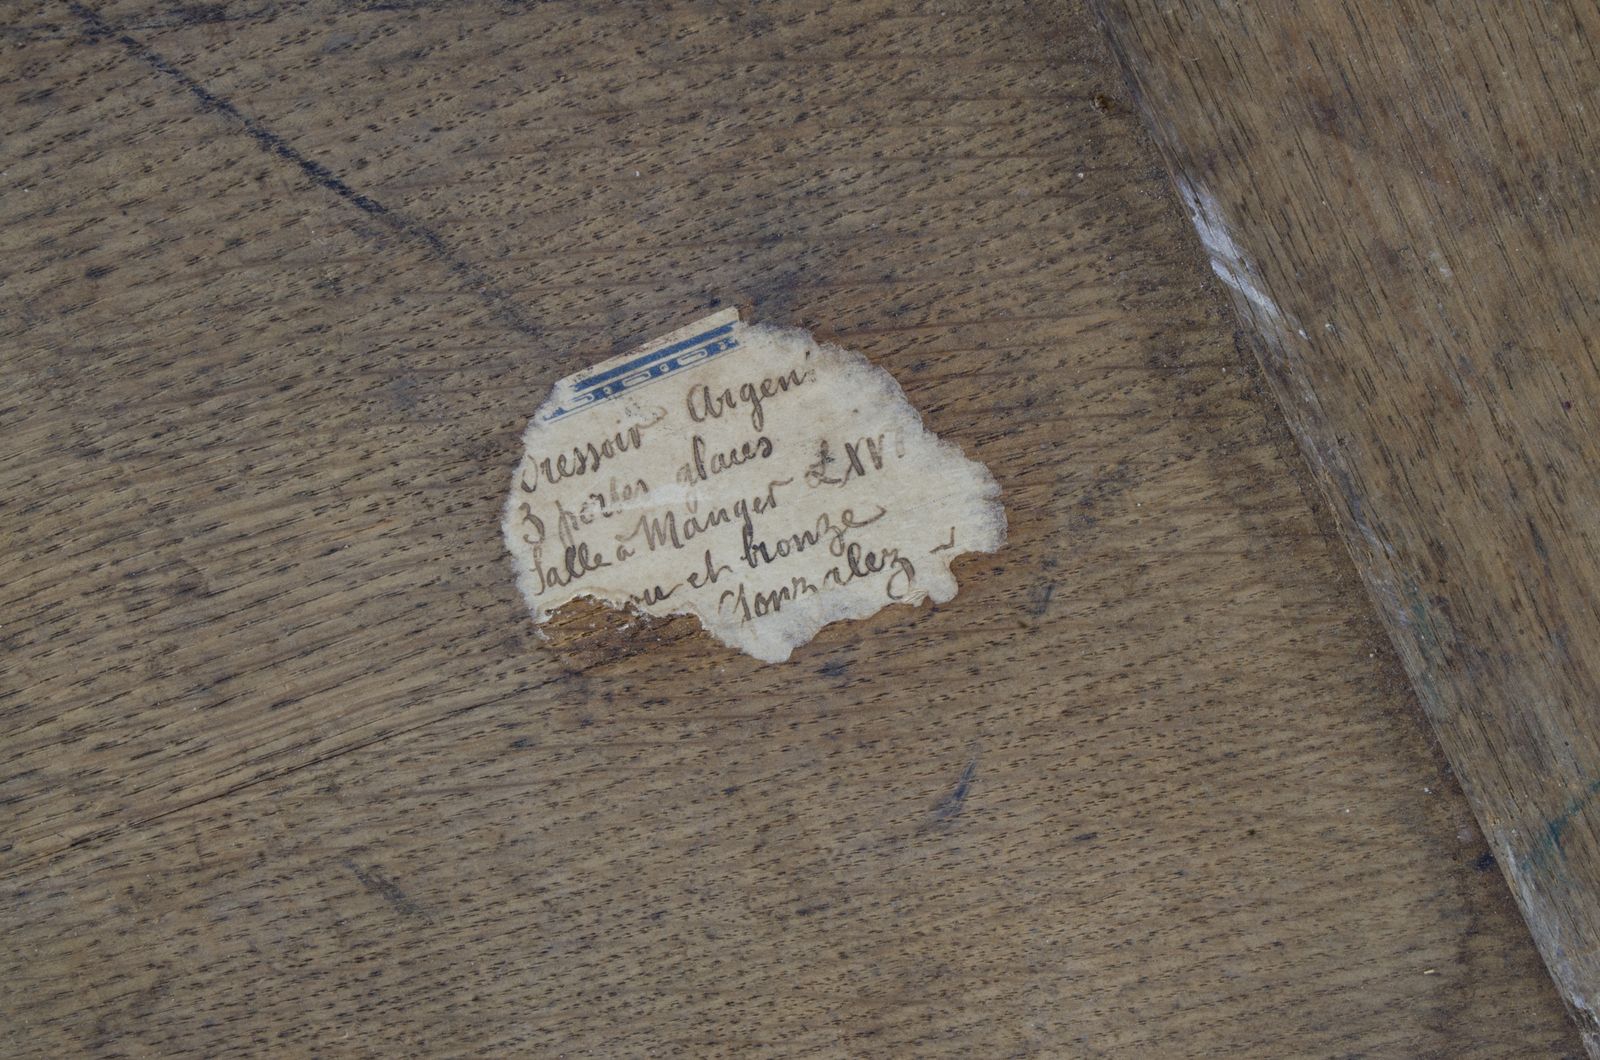 Dressoir Argen
3 portes glaces
Salle à Manger LXVI
ou et bronze
Gonzalez